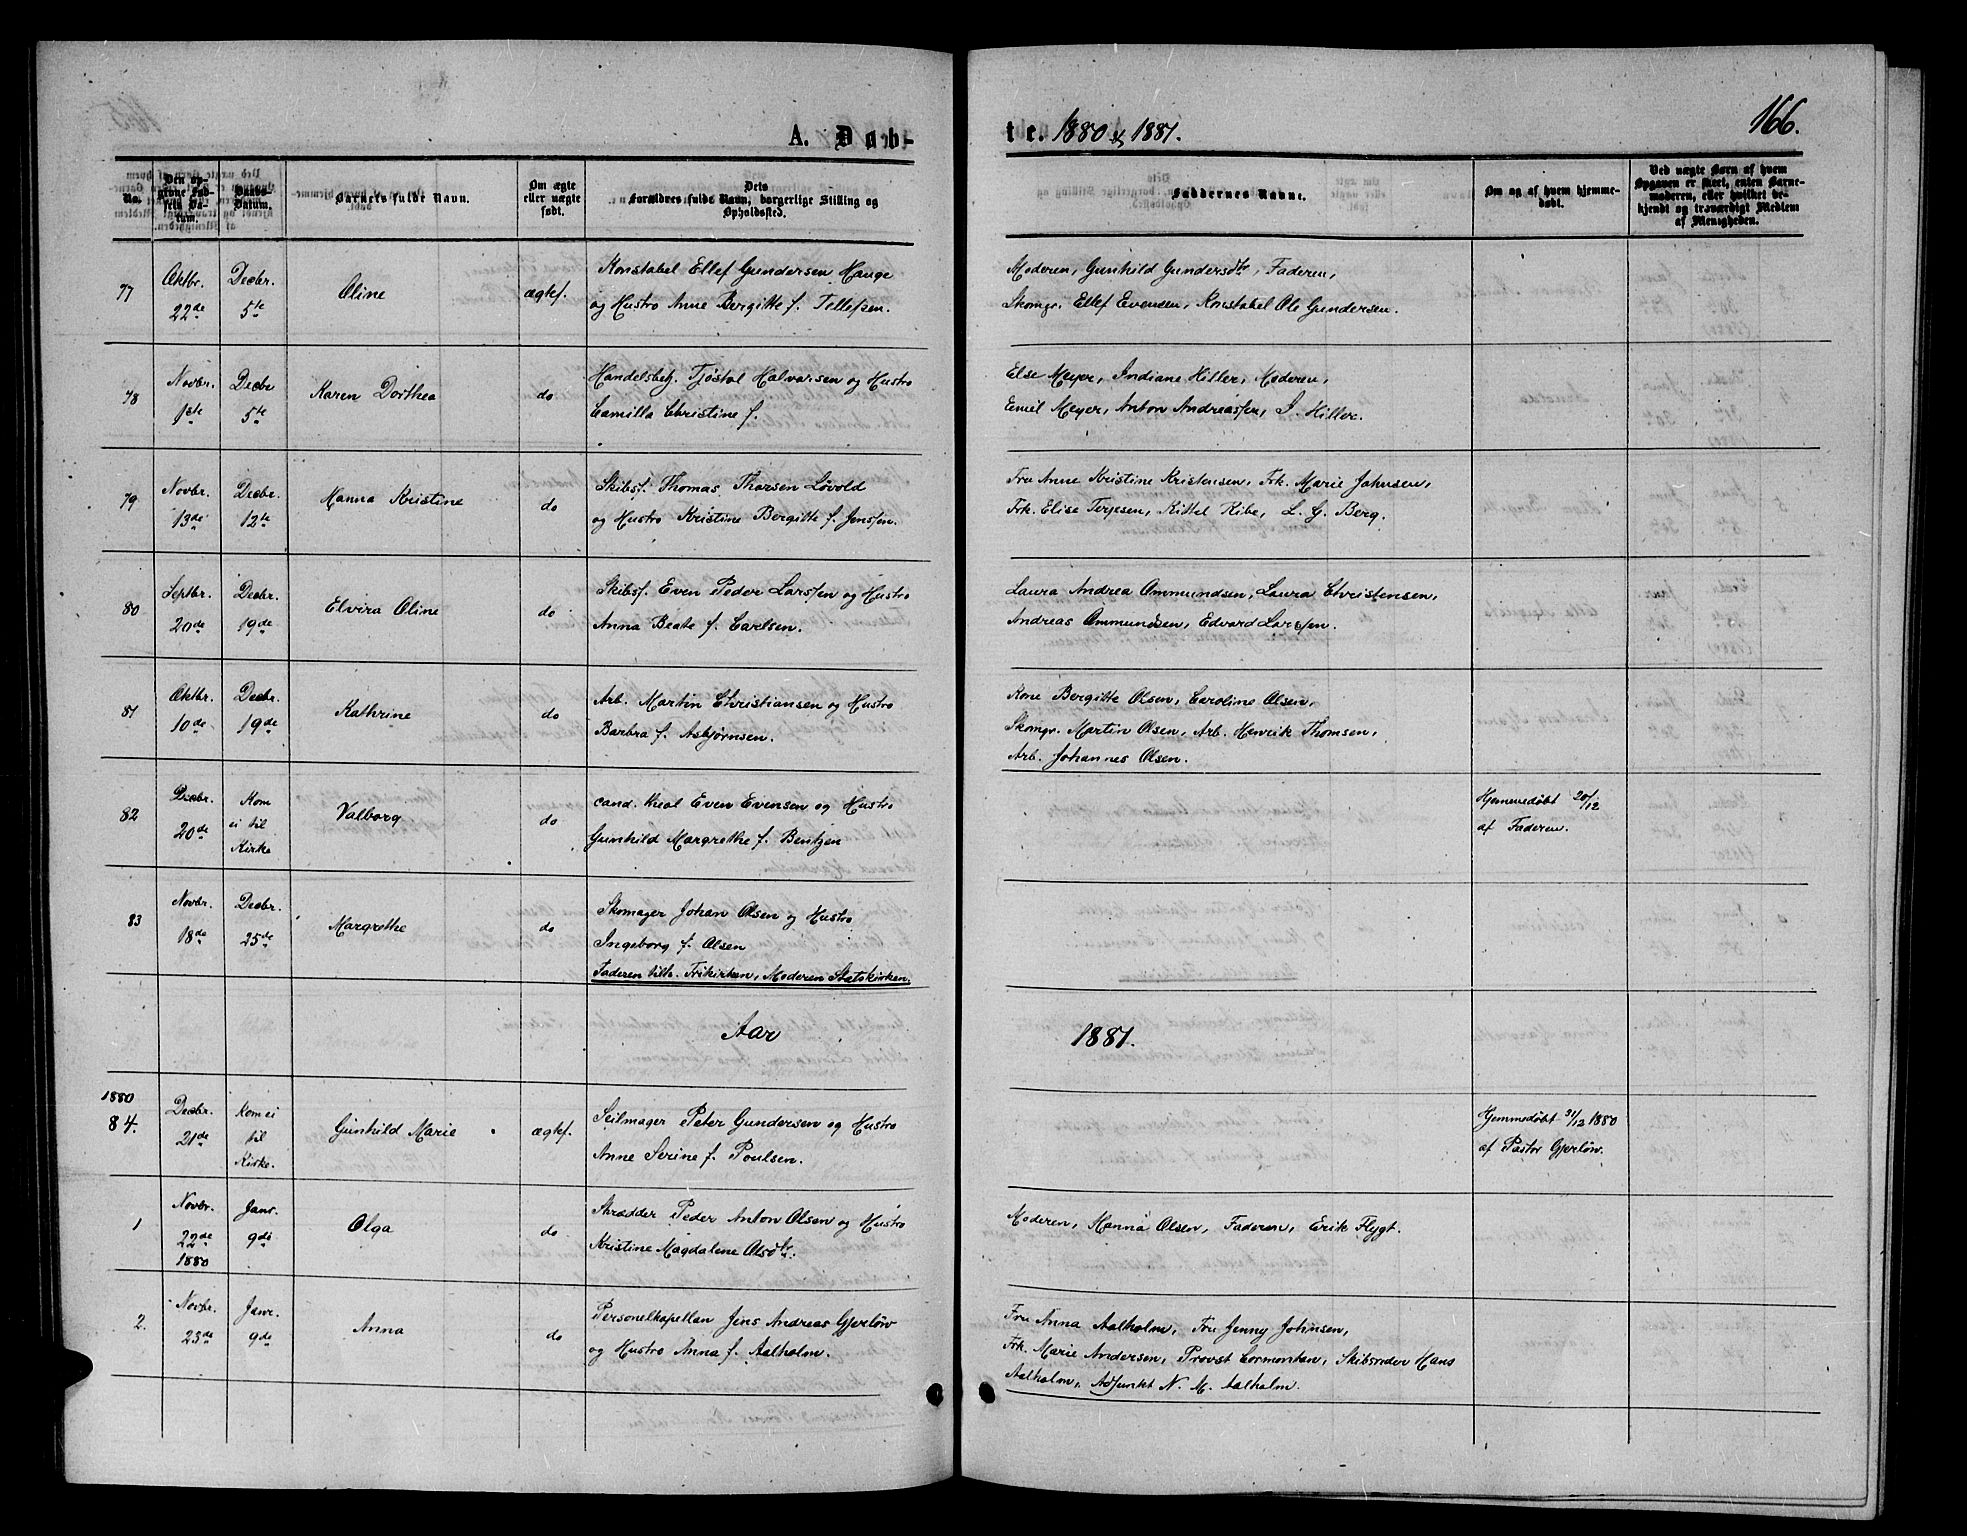 166.
A. Døb-
te. 1880 & 1881.
No.
Den opgivne Fødsels Datum.
Daabs-Datum.
Barnets fulde Navn.
Om ægte eller uægte født.
Dets Forældres fulde Navn, borgerlige Stilling og Opholdssted.
Faddernes Navne.
Om og af hvem hjemmedøbt.
Ved uægte Børn af hvem Opgaven er skeet, enten Barnemoderen, eller hvilket bekjendt og troværdigt Medlem af Menigheden.
77
Oktbr. 22de
Decbr. 5te
Oline
ægtef.
Konstabel Ellef Gundersen Hauge
og Hustro Anne Bergitte f. Tellefsen.
Moderen, Gunhild Gundersdtr, Faderen,
Skomgr. Ellef Evensen, Konstabel Ole Gundersen.
78
Novbr. 1ste
Decbr 5te
Karen Dorthea
do
Handelsbetj. Tjøstol Halvorsen og Hustro
Camilla Christine f.
Else Meyer, Indiane Hiller, Moderen,
Emil Meyer, Anton Andreassen, J. Hiller.
79
Novbr. 13de
Decbr. 12te
Hanna Kristine
do
Skibsf. Thomas Thorsen Løvold
og Hustro Kristine Bergitte f. Jenssen.
Fru Anne Kristine Kristensen, Frk. Marie Johnsen,
Frk. Elise Terjesen, Kittel Kibe, L. G. Berg.
80
Septbr. 20de
Decbr. 19de
Elvira Oline
do
Skibsf. Even Peder Larssen og Hustro
Anna Beate f. Carlsen.
Laura Andrea Ommundsen, Laura Christensen,
Andreas Ommundsen, Edvard Larssen.
81
Oktbr. 10de
Decbr. 19de
Kathrine
do
Arb. Martin Christiansen og Hustro
Barbra f. Asbjørnsen.
Kone Bergitte Olsen, Caroline Olsen,
Skomgr. Martin Olsen, Arb. Henrik Thomsen,
Arb. Johannes Olsen.
82
Decbr. 20de
Kom ei til Kirke
Valborg
do
cand. theol Even Evensen og Hustro
Gunhild Margrethe f. Bentzen
Hjemmedøbt 20/12
af Faderen.
83
Novbr. 18de
Decbr. 25de
Margrethe
do
Skomager Johan Olsen og Hustro
Ingeborg f. Olsen
Faderen tilh. Frikirken, Moderen Statskirken.
Aar 1881.
1880
84.
Decbr. 21de
Kom ei til Kirke.
Gunhild Marie
ægtef.
Seilmager Peter Gundersen og Hustro
Anne Serine f. Poulsen.
Hjemmedøbt 31/12 1880
af Pastor Gjerløw.
1
Novbr. 22de 1880
Janr. 9de
Olga
do
Skrædder Peder Anton Olsen og Hustro
Kristine Magdalene Olsdtr.
Moderen, Hanna Olsen, Faderen, Erik Flygt.
2.
Novbr. 23de
Janr. 9de
Anna
do
Personelkapellan Jens Andreas Gjerløw
og Hustro Anna f. Aalholm.
Fru Anna Aalholm, Fru Jenny Johnsen,
Frk. Marie Andersen, Provst Cormontan, Skibsreder Hans
Aalholm, Adjunkt N. M. Aalholm.